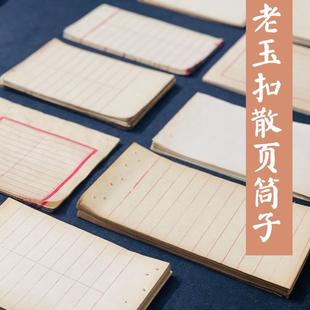 老玉扣散页筒子